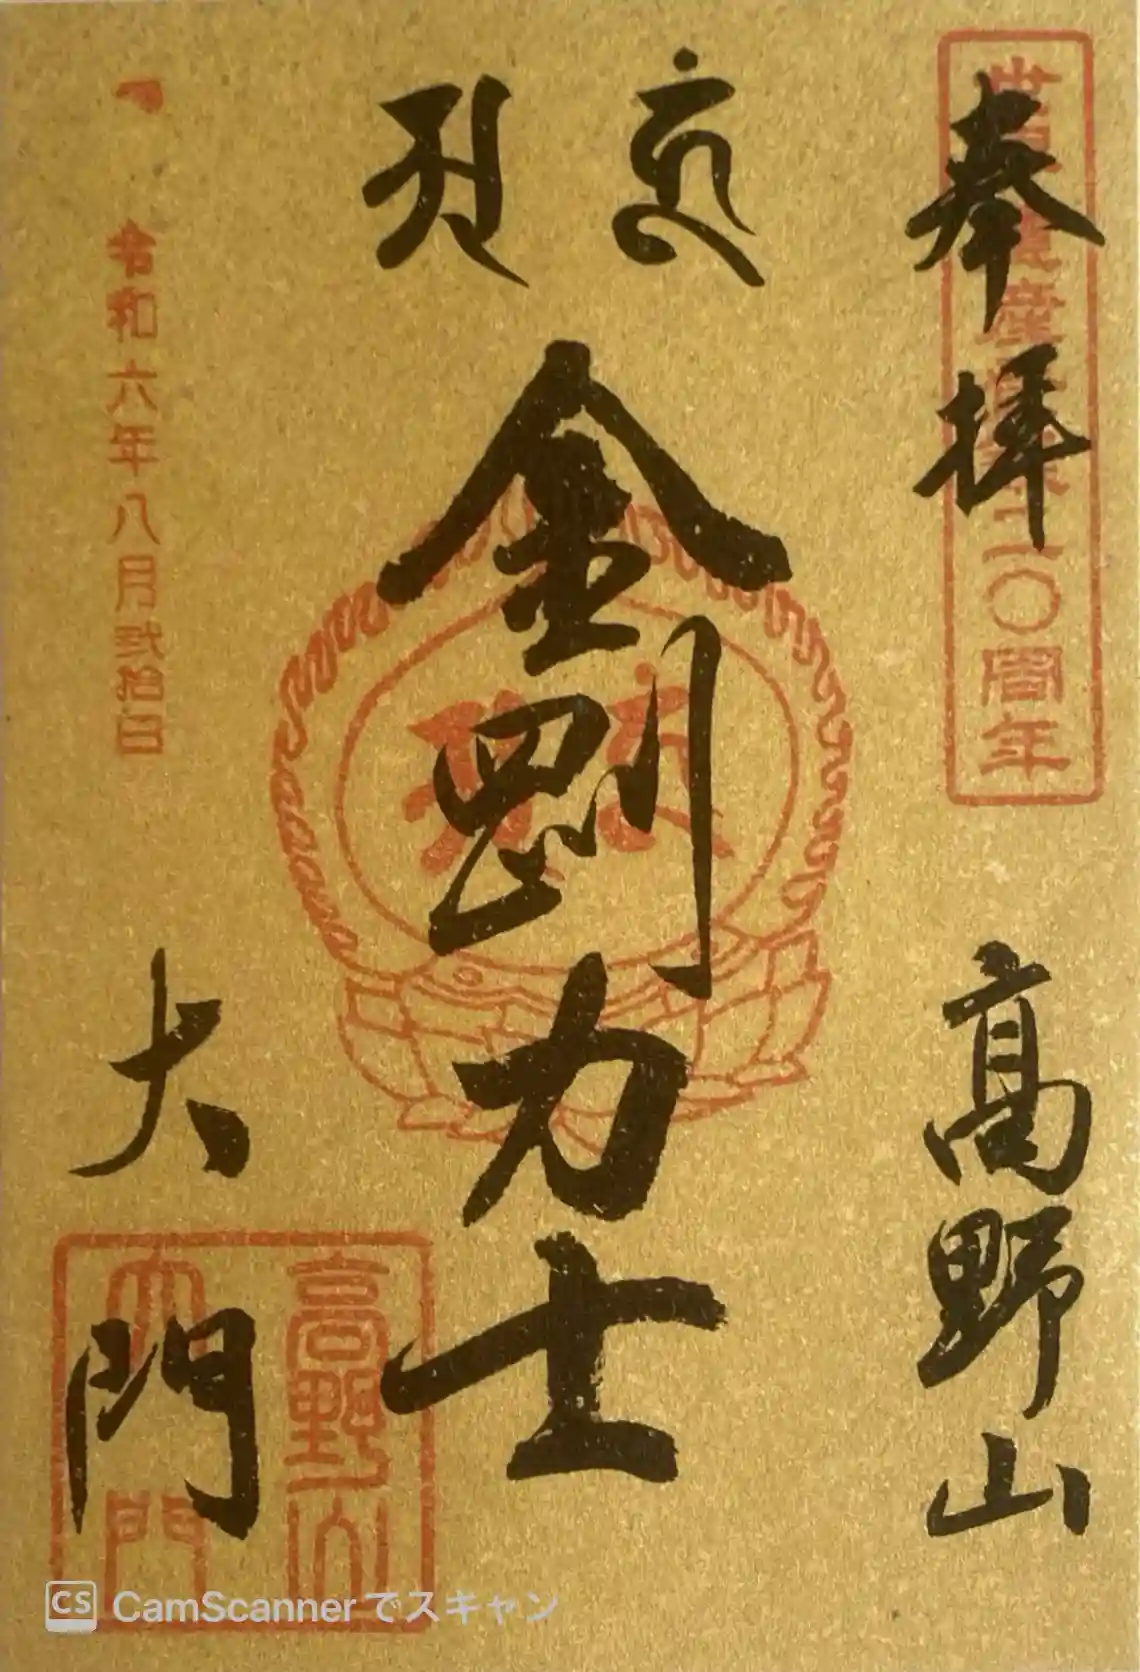 奉拝
世界遺産登録二〇周年
高野山
金剛力士
令和六年八月弐拾日
大門
高野山
大門
CS CamScannerでスキャン